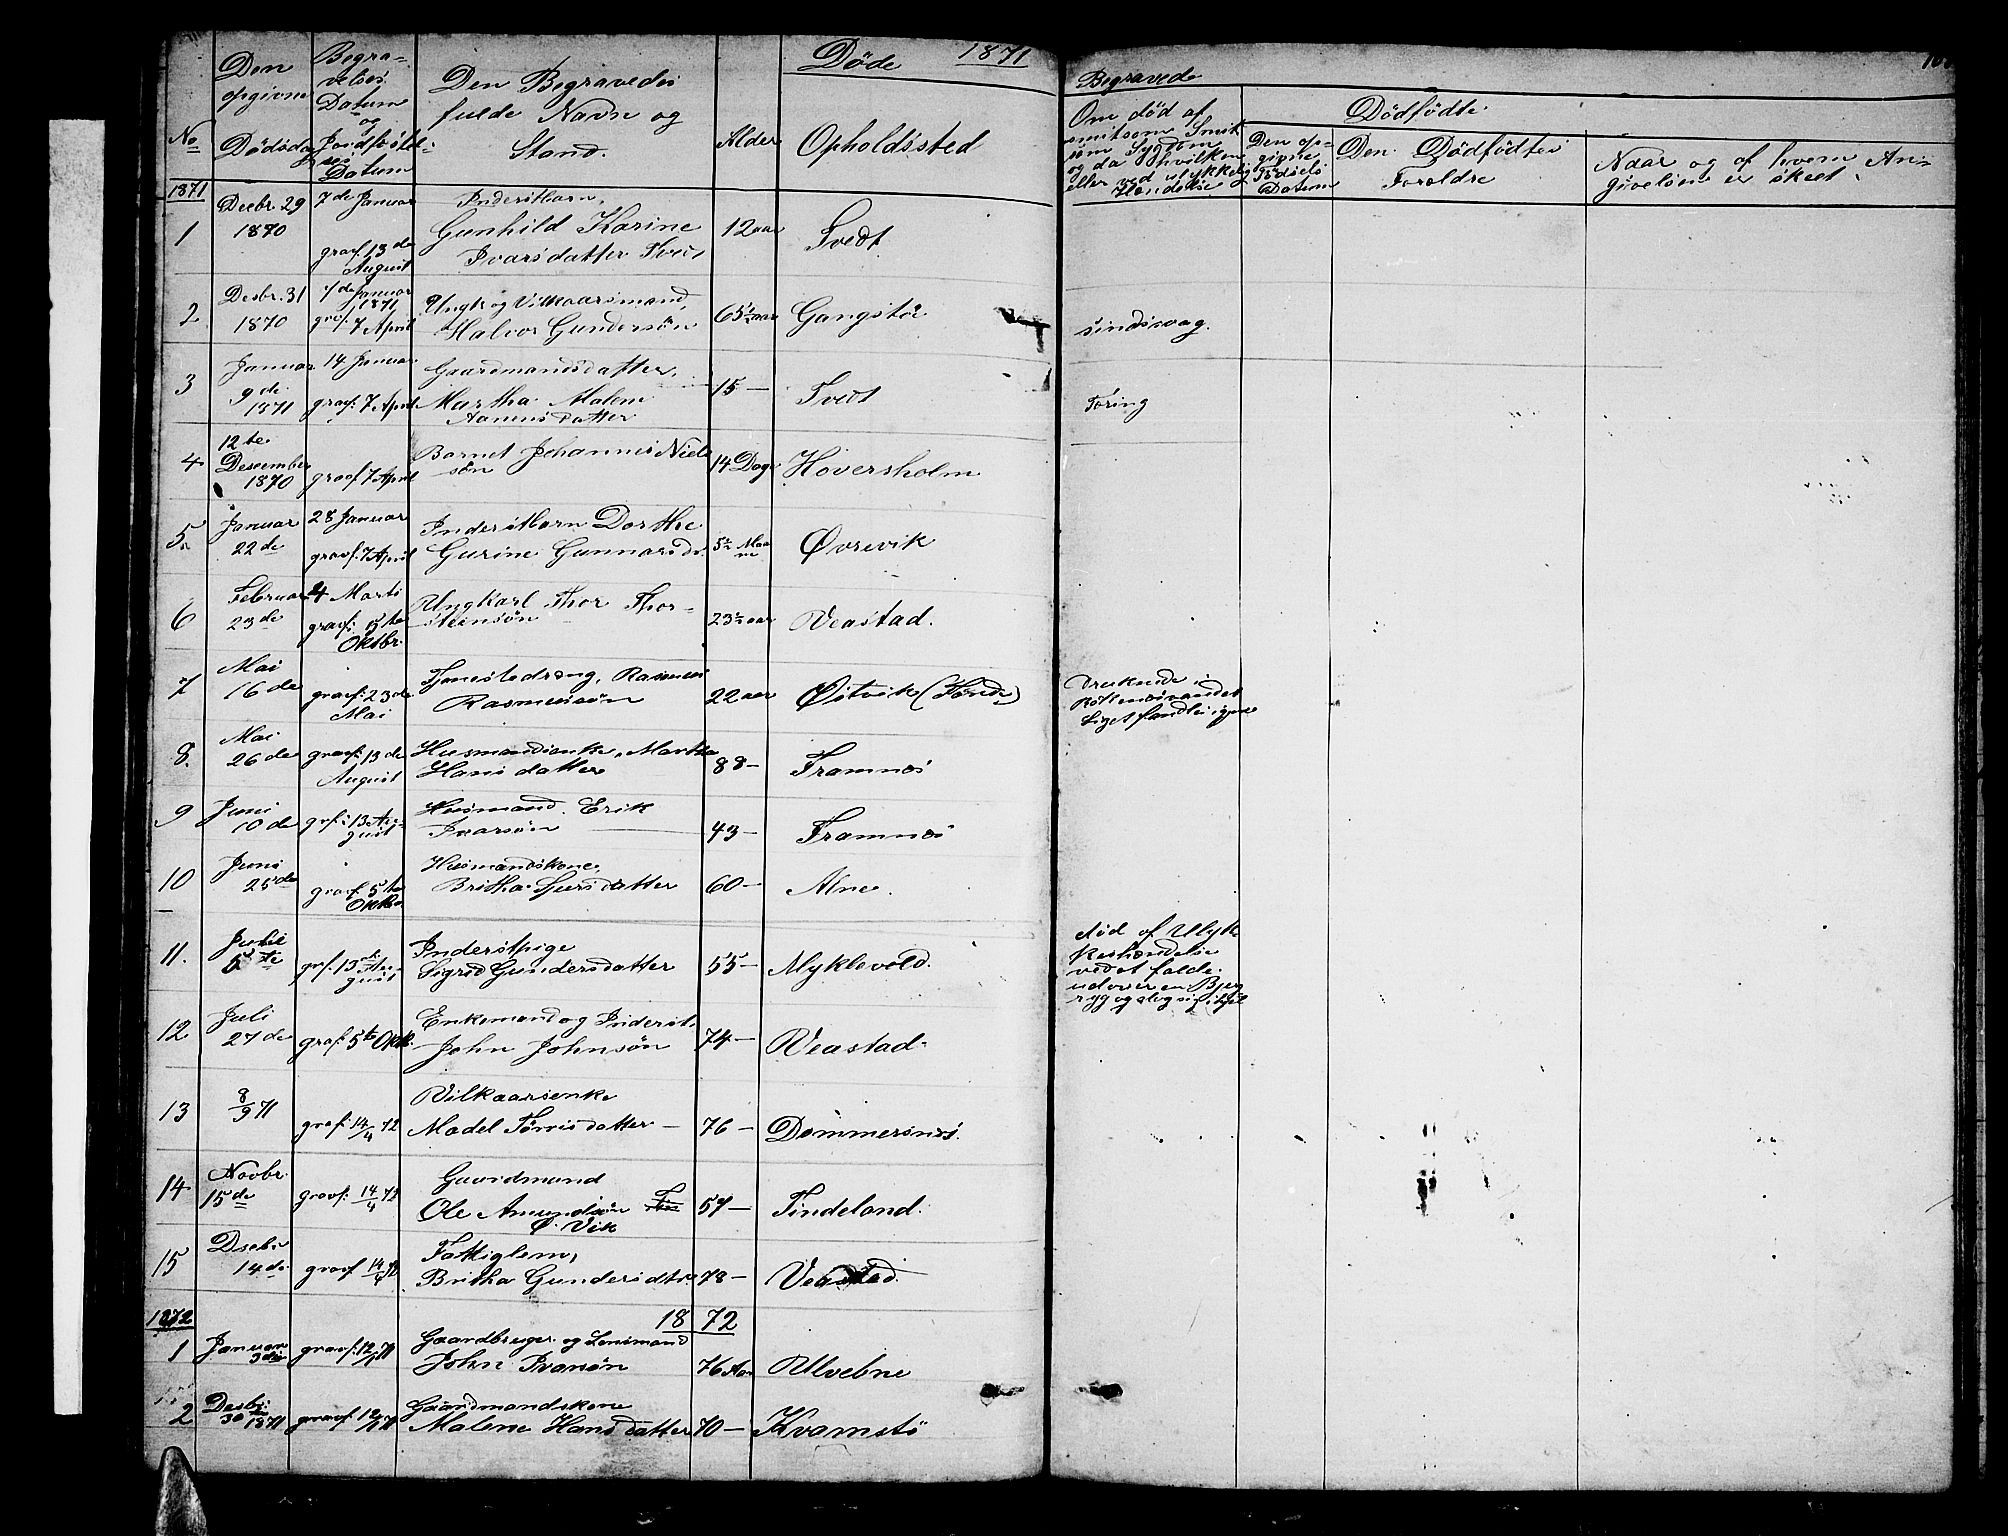 Døde 1871
Begravede
No
Den opgivne Dødsdag
Begravelses Datum og Jordfæstelses Datum
Den Begravedes fulde Navn og Stand.
Alder
Opholdssted
Om død af smitsom Sygdom og da hvilken eller ved ulykkelig Hændelse
Dødfødte
Den opgivne Fødsels Datum
Den Dødfødtes Forældre
Naar og af hvem Angivelsen er skeet.
1871
1 Decbr. 29 1870 7de Januar graf. 13de August Inderstbarn, Gunhild Karine Ivarsdatter Tvedt 12 aar Tvedt
2 Desbr. 31 1870 7de Januar 1871 grf. 7 April Ungk. og Vilkaarsmand, Halvor Gundersøn 65½ aar Gangstø sindssvag.
3 Januar 9de 1871 14 Januar graf. 7 April Gaardmandsdatter, Martha Malene Aamundsdatter 15 — Tvedt Tøring
4 12te Descember 1870 graf 7 April Barnet Johannes Nielssøn 14 Dage Hoversholm
5 Januar 22de 28 Januar grav. 7 April Inderstbarn Dorthe Gurine Gunnarsd. 5½ Maane Øvrevik
6 Februar 23de 4 Marts graf: 5te Oktbr. Ungkarl Thor Thorsteinsøn 23½ aar Veastad.
7 Mai 16de graf: 23de Mai Tjenestedreng, Rasmus Rasmussøn 22 aar Østvik (Tønde) Druknede i
8. Mai 26de graf: 13de August Husmandsenke, Martha Hansdatter 88 — Framnæs
9 Juni 10de grf: 13 August Husmand. Erik Ivarsøn 43 — Framnæs
10 Juni 25de graf 5te Oktbr. Husmandskone, Britha Sjursdatter 60 — Alne.
11. Juli 5te grf. 13de August Inderstpige Sigrid Gundersdatter 55 — Myklevold. død af Ulykkeshændelse vedat falde udover en Bjergryg og slog sig ihjel
12 Juli 27de graf. 5te Oktb. Enkemand og Inderst. John Johnsøn 74 — Veastad
13 8/9 71 graf: 14/4 72 Vilkaarsenke Madel Tørrisdatter — 76 — Dommersnæs.
14 Novbr. 15de gravf: 14/4 72 Gaardmand Ole Amundsøn Ø. Vik 57 — Tindeland.
15 Dsebr 14de gravf 14/4 72 Fattiglem, Britha Gundersdtr. 78 — Veastad.
1872 1872
1 Januar 3die gravf: 12/1 71 Gaardbruger og Lensmand John Ivarsøn 76 Aar Ulvebne
2 Desbr: 30 1871 gravf 12/1 71 Gaardmandskone Malene Hansdatter 70 — Kvamstø